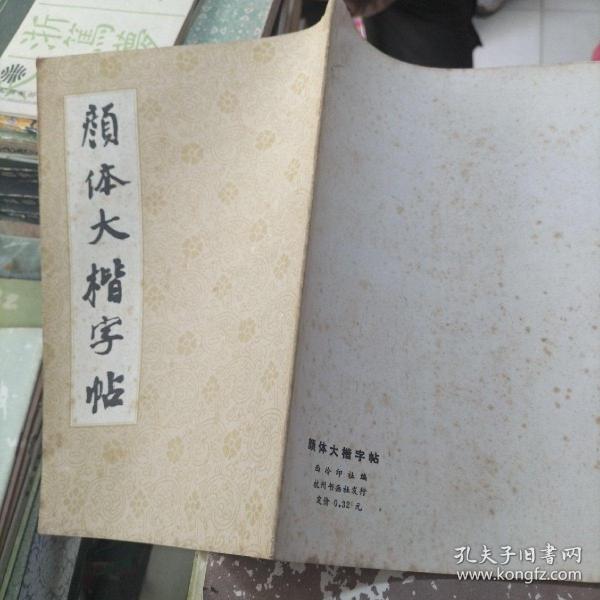 浙
顏体大楷字帖
顏体大楷字帖
西泠印社編
杭州书画社发行
定价 0.32元
孔夫子旧书网
www.kongfz.com